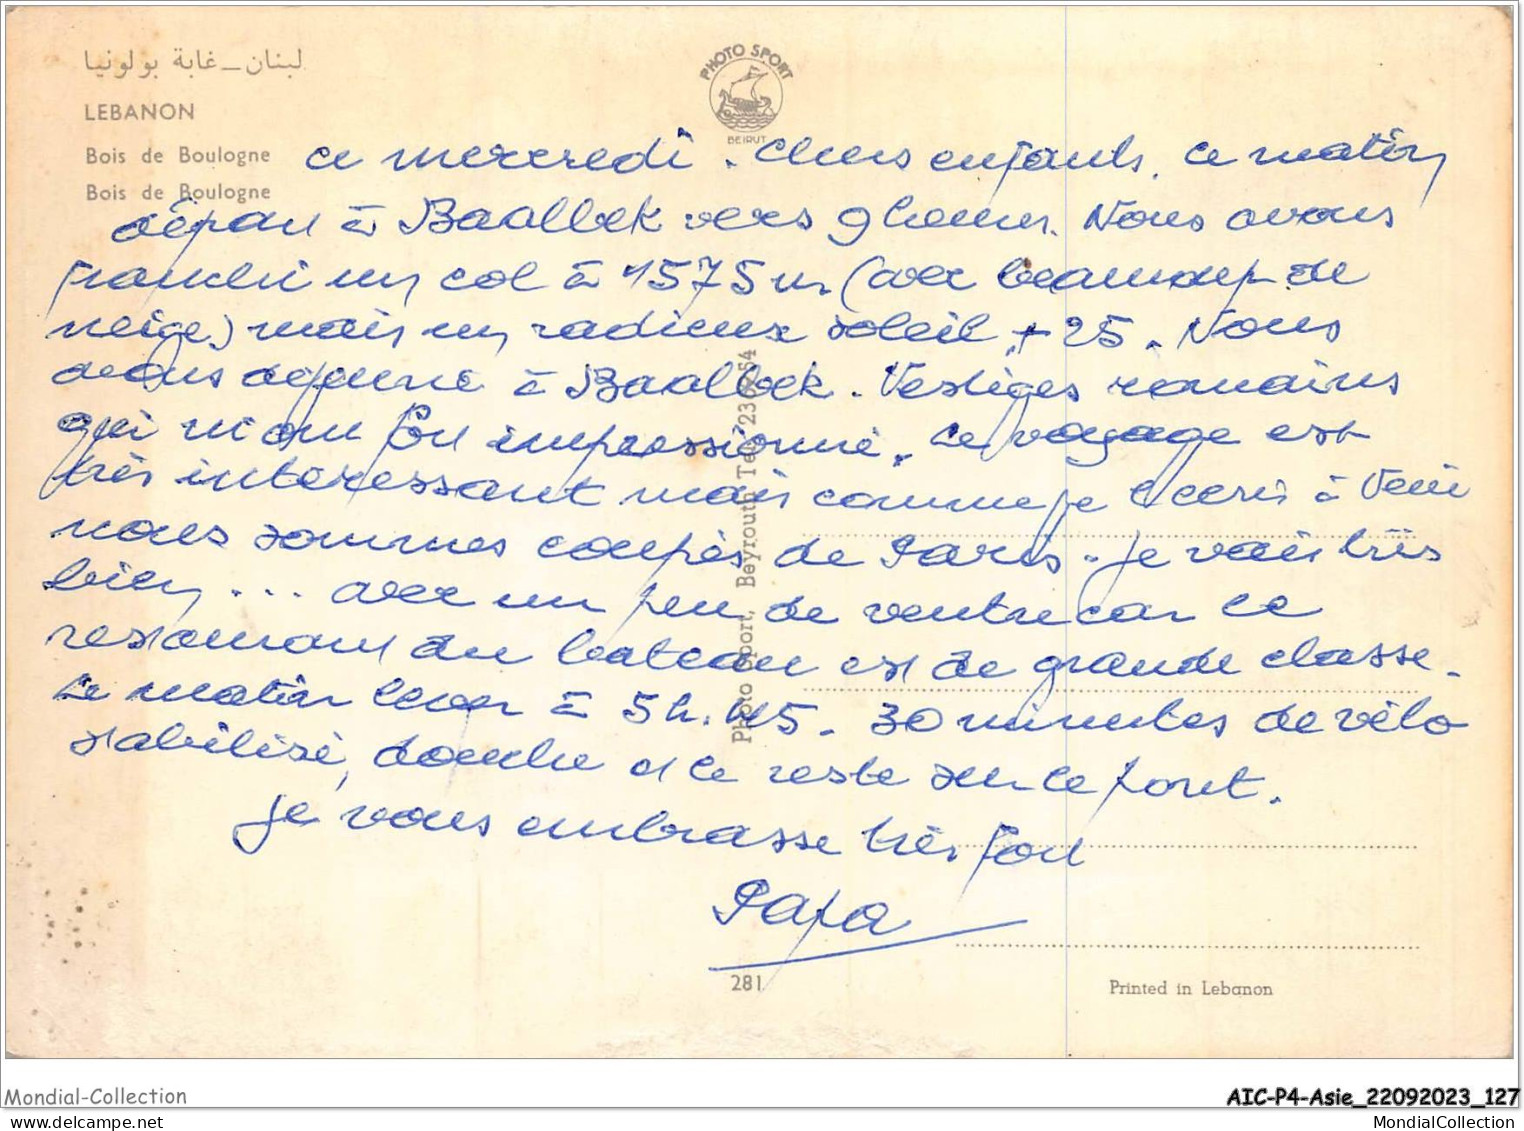 لبنان - غابة بولونيا
PHOTO SPORT
BEIRUT
LEBANON
Bois de Boulogne
Bois de Boulogne
ce mercredi. Chers enfants. Ce matin
départ à Baalbek vers 9 heures. Nous avons
franchi un col à 1575 m (avec beaucoup de
neige) mais un radieux soleil + 25. Nous
à Baalbek. Vestiges romains
qui m'ont fort impressionné. Le voyage est
très intéressant mais comme je l'écris à
nous sommes coupés de Paris. Je vais très
bien ... avec un peu de ventre car le
restaurant du bateau est de grande classe.
Le matin lever à 5 h. 45. 30 minutes de vélo
stabilisé, douche et le reste sur le pont.
Je vous embrasse très fort
Papa
Photo Sport, Beyrouth Tel. 230254
281
Printed in Lebanon
Mondial-Collection
AIC-P4-Asie_22092023_127
MondialCollection